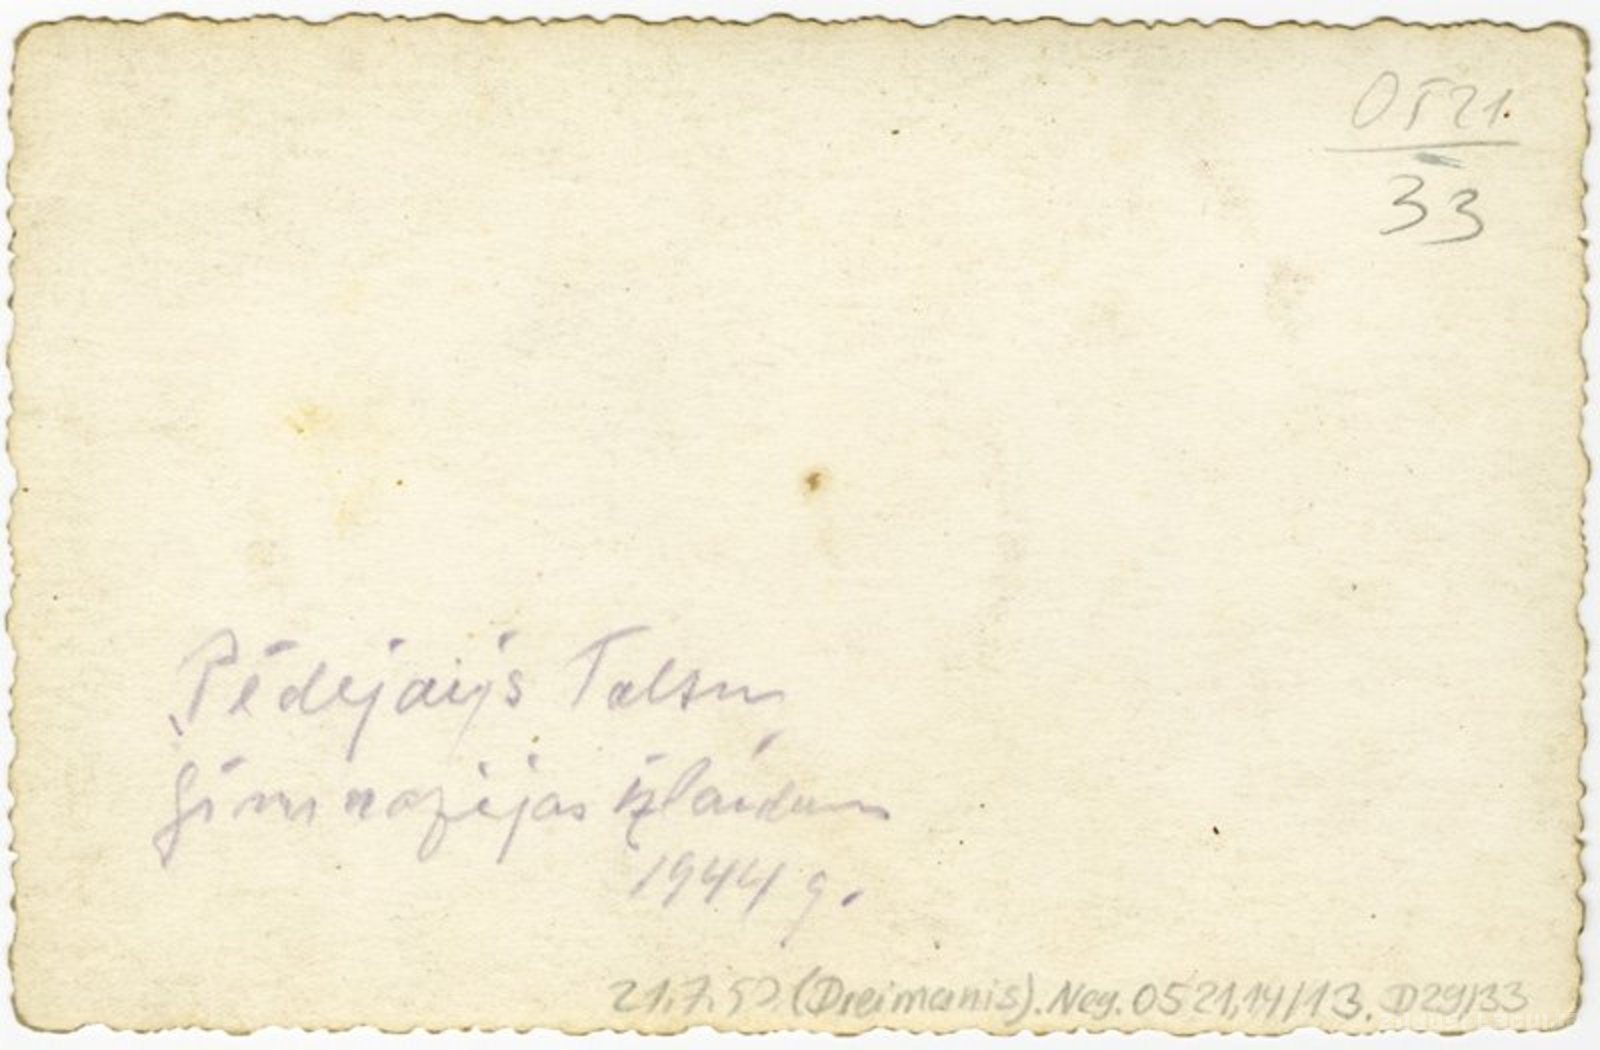 0521
33
Pēdējais Talsu
ģimnazijas izlaidums
1944 g.
21.7.57. (Dreimanis). Neg. 0521,14/13. D29/33